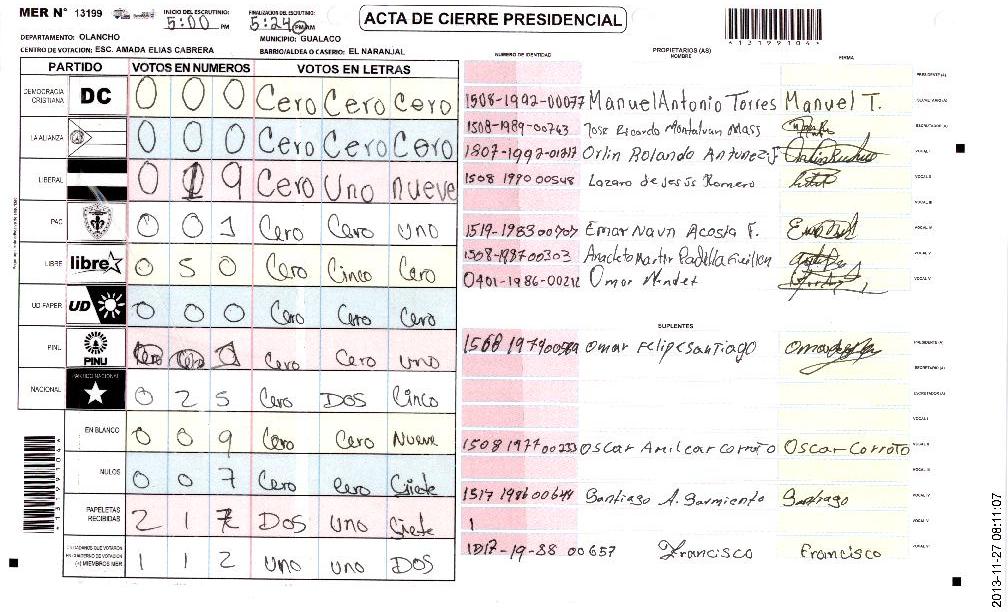 MER N° 13199
INICIO DEL ESCRUTINIO: 5:00 PM
FINALIZACION DEL ESCRUTINIO: 5:24 PM AM
ACTA DE CIERRE PRESIDENCIAL
*13199104*
DEPARTAMENTO: OLANCHO
MUNICIPIO: GUALACO
CENTRO DE VOTACION: ESC. AMADA ELIAS CABRERA
BARRIO/ALDEA O CASERIO: EL NARANJAL
PARTIDO VOTOS EN NUMEROS VOTOS EN LETRAS
DEMOCRACIA CRISTIANA DC 0 0 0 Cero Cero Cero
LA ALIANZA 0 0 0 Cero Cero Cero
LIBERAL 0 1 9 Cero Uno nueve
PAC 0 0 1 Cero Cero uno
LIBRE libre 0 5 0 Cero Cinco Cero
UD FAPER UD 0 0 0 Cero Cero Cero
PINU PINU Cero Cero 1 Cero Cero uno
NACIONAL PARTIDO NACIONAL 0 2 5 Cero DOS Cinco
EN BLANCO 0 0 9 Cero Cero Nueve
NULOS 0 0 7 Cero Cero Siete
PAPELETAS RECIBIDAS 2 1 7 DOS uno Siete
CIUDADANOS QUE VOTARON EN CUADERNO DE VOTACION (+) MIEMBROS MER 1 1 2 uno uno DOS
*13199104*
NUMERO DE IDENTIDAD
PROPIETARIOS (AS)
NOMBRE
FIRMA
PRESIDENTE (A)
1508-1992-00077 Manuel Antonio Torres Manuel T.
SECRETARIO (A)
1508-1989-00743 Jose Ricardo Montalvan Mass
ESCRUTADOR (A)
1807-1992-01317 Orlin Rolando Antunez
VOCAL I
1508 1990 00548 Lazaro de Jesús Romero
VOCAL II
VOCAL III
1519-1983 00707 Emar Naun Acosta F.
VOCAL IV
1508-1987 00303 Anacleto Martir Padilla
VOCAL V
0401-1986-00212 Omar Mendez
SUPLENTES
1508 1979 Omar Felipe Santiago Omar
PRESIDENTE (A)
SECRETARIO (A)
ESCRUTADOR (A)
VOCAL I
1508 1977 00233 Oscar Amilcar Corroto Oscar Corroto
VOCAL II
VOCAL III
1517 1986 00648 Santiago A. Sarmiento Santiago
VOCAL IV
1
VOCAL V
1517-19-88 00657 Francisco Francisco
2013-11-27 08:11:07